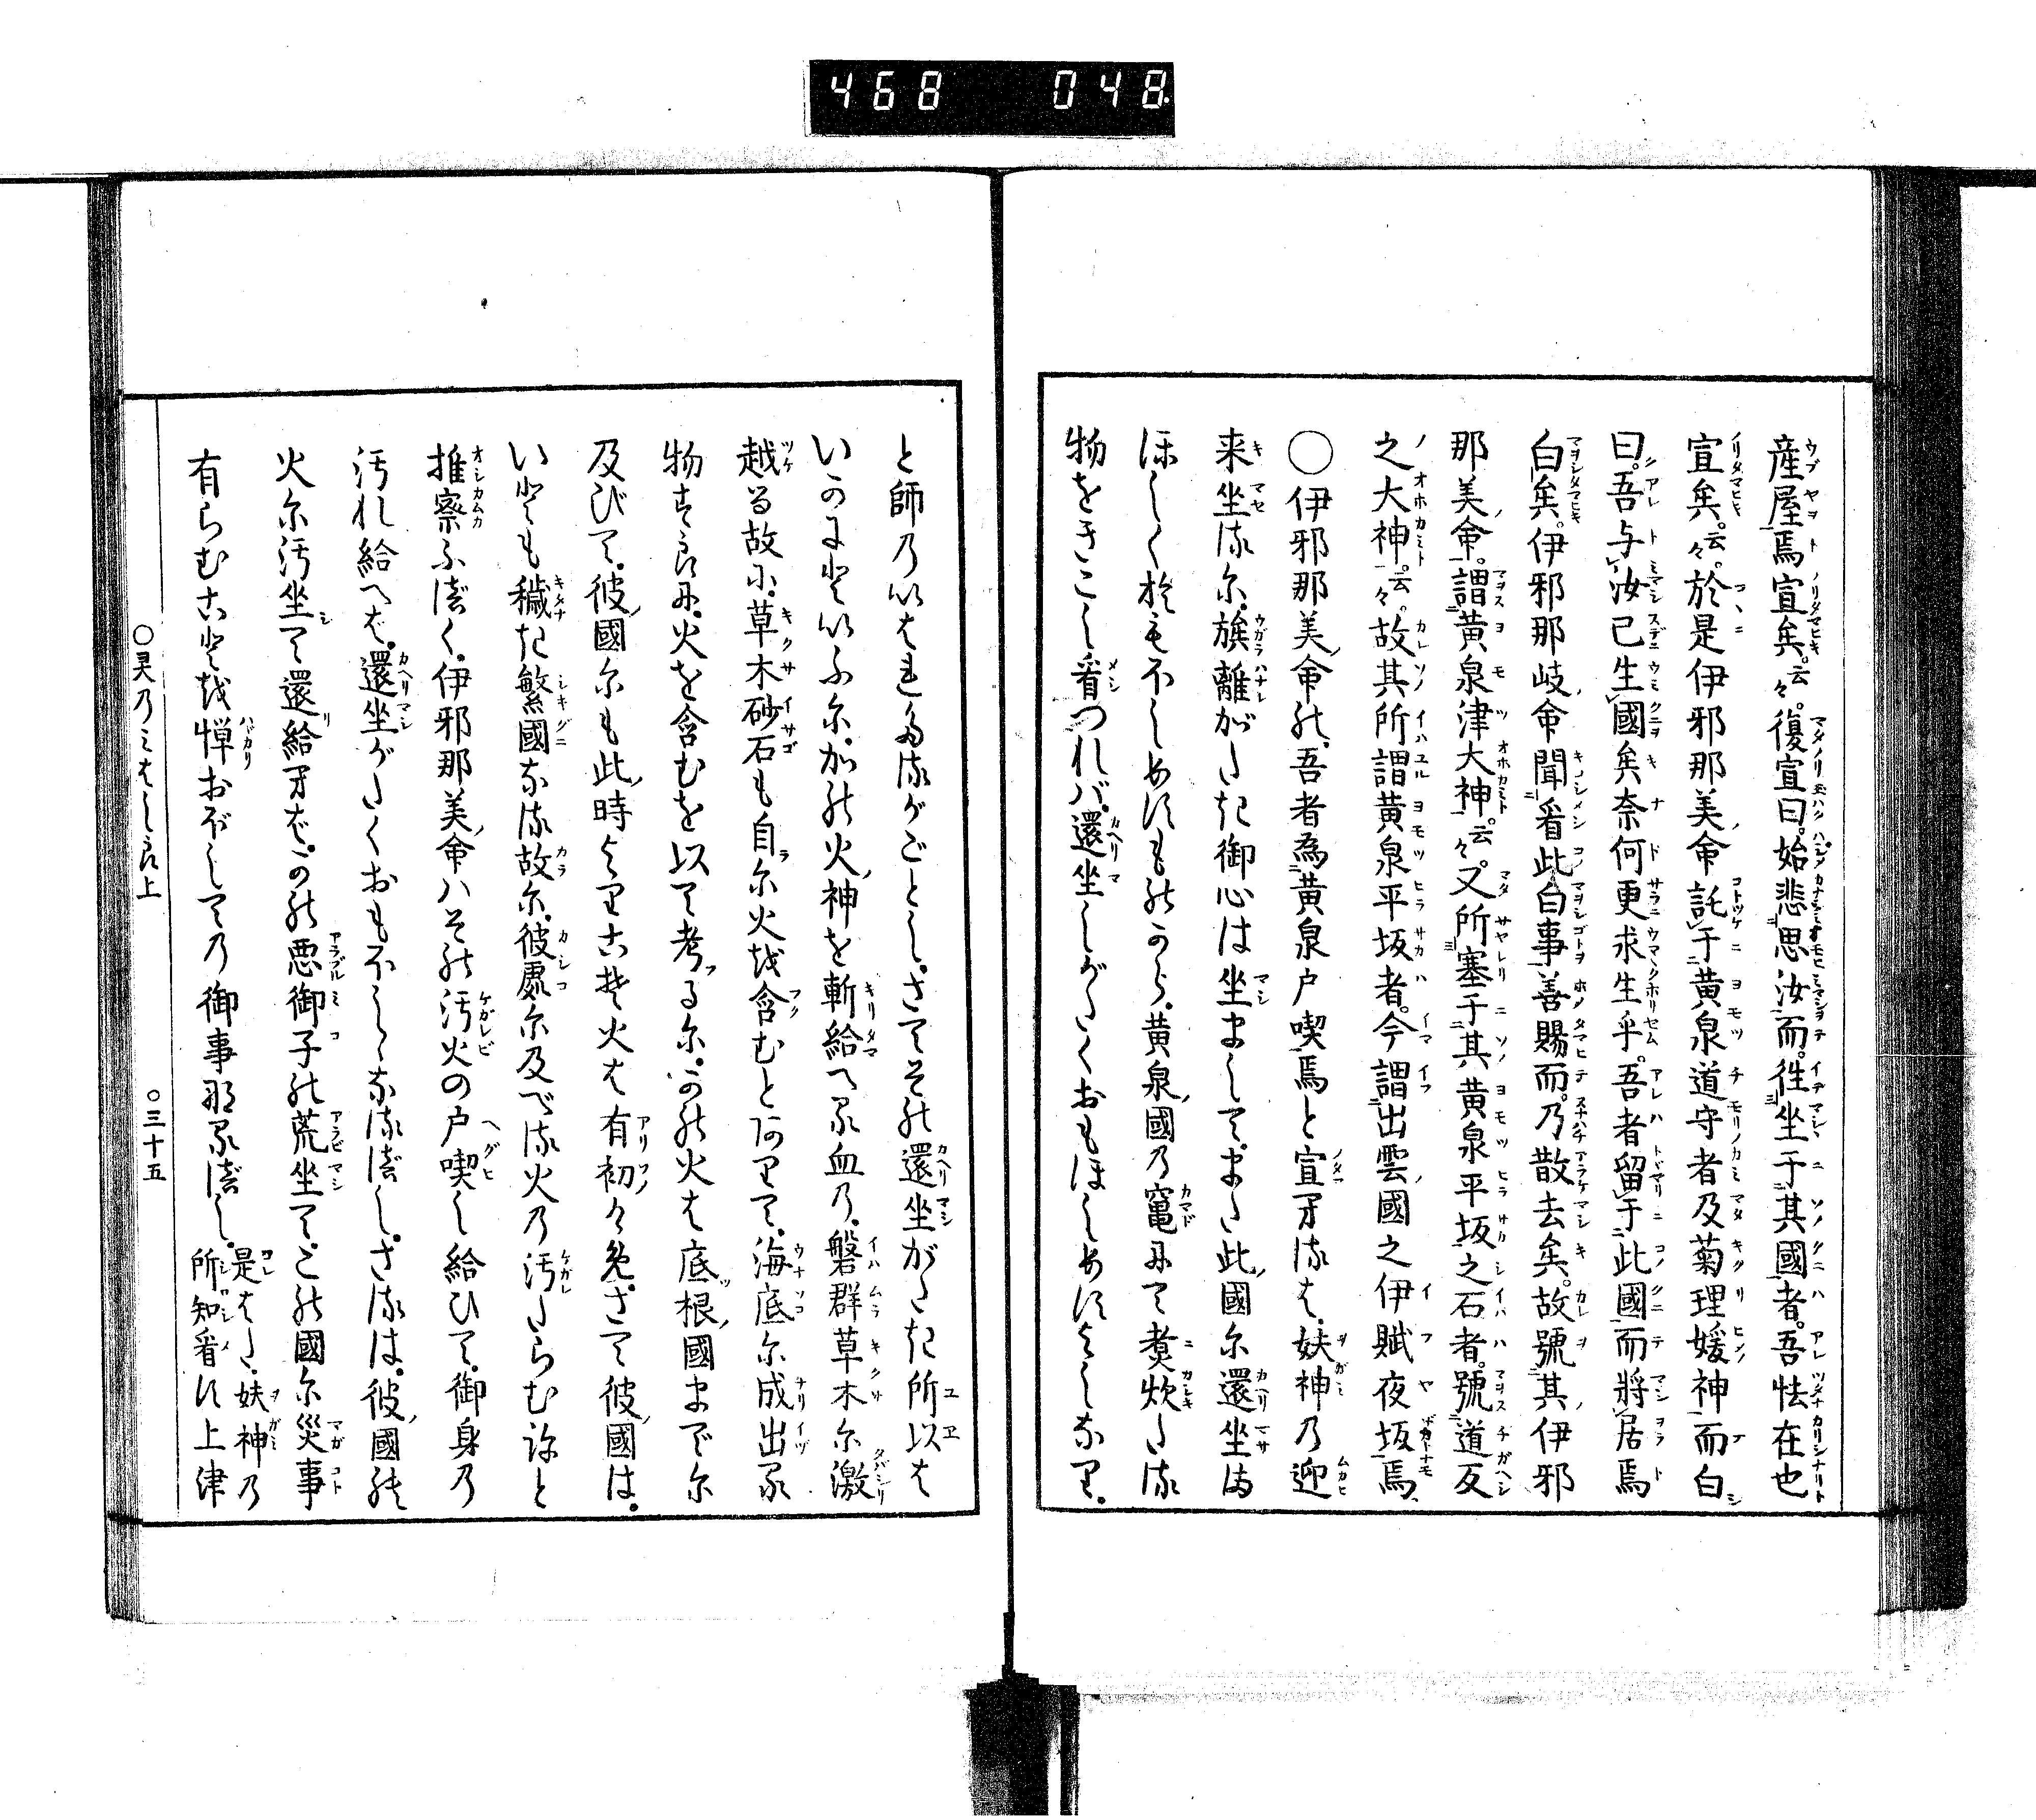 468 048
産屋焉宣矣云々復宣曰始悲思汝而徃坐于其國者吾怯在也
宣矣云々於是伊邪那美命託于黄泉道守者及菊理媛神而白
曰吾与汝已生國矣奈何更求生乎吾者留于此國而將居焉
白矣伊邪那岐命聞看此白事善賜而乃散去矣故號其伊邪
那美命謂黄泉津大神云々又所塞于其黄泉平坂之石者號道反
之大神云々故其所謂黄泉平坂者今謂出雲國之伊賦夜坂焉
○伊邪那美命の吾者為黄泉戸喫焉と宣へるは妋神乃迎
来坐る尓族離がたき御心は坐ましてまた此國尓還坐ま
ほしくおもほしめすものから黄泉國乃竈にて煑炊たる
物をきこし看つれバ還坐しがたくおもほしめすよしなり
と師乃いはれたるがごとしさてその還坐がたき所以は
いかにといふ尓加の火神を斬給へる血乃磐群草木尓激
越る故に草木砂石も自尓火を含むとありて海底尓成出る
物すらに火を含むを以て考る尓かの火は底根國まで尓
及びて彼國尓も此時よりこそ火は有初けめさて彼國は
いとも穢き繁國なる故尓彼處尓及べる火乃汚たらむ
推察ふべく伊邪那美命ハその汚火の戸喫し給ひて御身乃
汚れ給へば還坐がたくおもほしゝなるべしさるは彼國の
火尓汚坐て還給はゞかの悪御子の荒坐てこの國尓災事
有らむことを憚おぼしての御事なるべし是はた妋神乃所知看す上津
○霊乃みはしら上 ○三十五